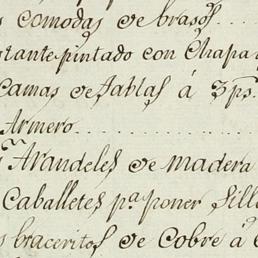 s comodas de brasos....
stante pintado con chapa
camas de tablas á 3 ps.
Armero................
Arandeles de madera
Caballetes pa. poner sill
s braceritos de cobre á